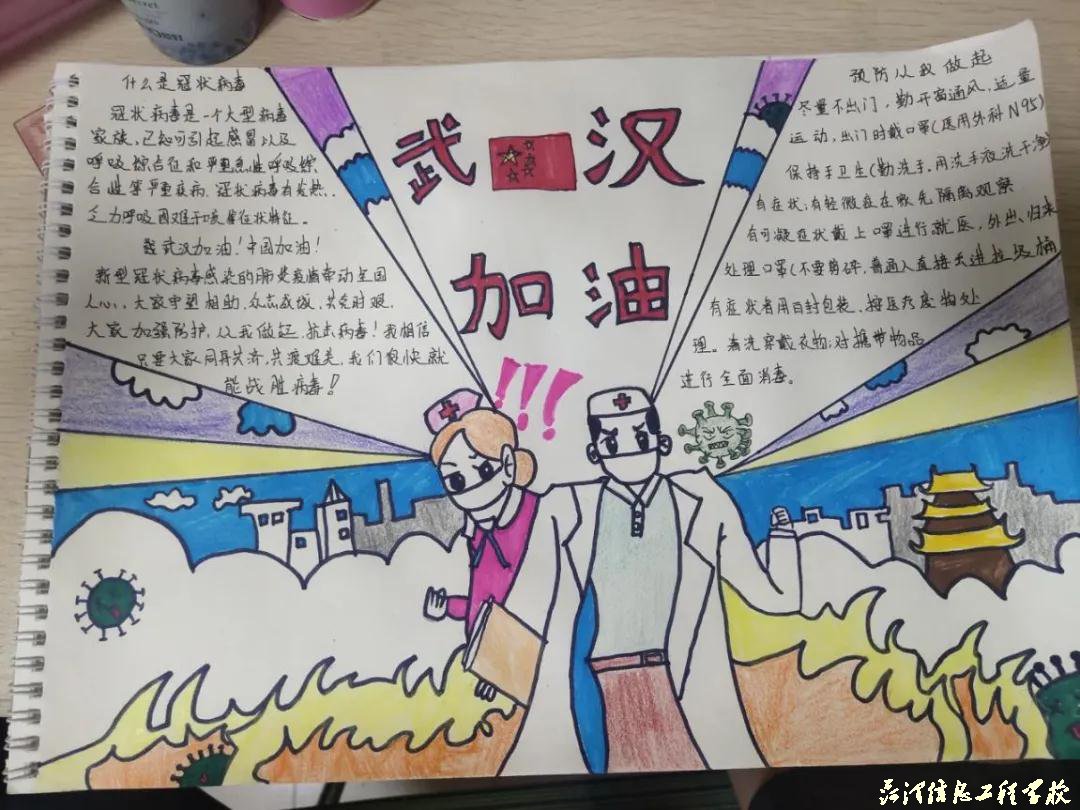 什么是冠状病毒
冠状病毒是一个大型病毒
家族,已知可引起感冒以及
呼吸综合征和严重急性呼吸综
合性等严重疾病.冠状病毒有发热、
乏力呼吸困难干咳等症状特征。
我武汉加油!中国加油!
新型冠状病毒感染的肺炎疫情牵动全国
人心,大家守望相助,众志成城,共克时艰.
大家加强防护,从我做起,抗击病毒!我相信
只要大家同舟共济,共渡难关,我们很快就
能战胜病毒!
武汉
加油
!!!
预防从我做起
尽量不出门,勤开窗通风,适量
运动,出门时戴口罩(医用外科N95)
保持手卫生(勤洗手,用洗手液洗干净)
有症状;有轻微症在家先隔离观察
有可凝症状戴上口罩进行就医,外出、归来
处理口罩(不要剪碎,普通人直接丢进垃圾桶
有症状者用自封包装,按医疗废物处
理。清洗穿戴衣物;对携带物品
进行全面消毒。
菏泽信息工程学校